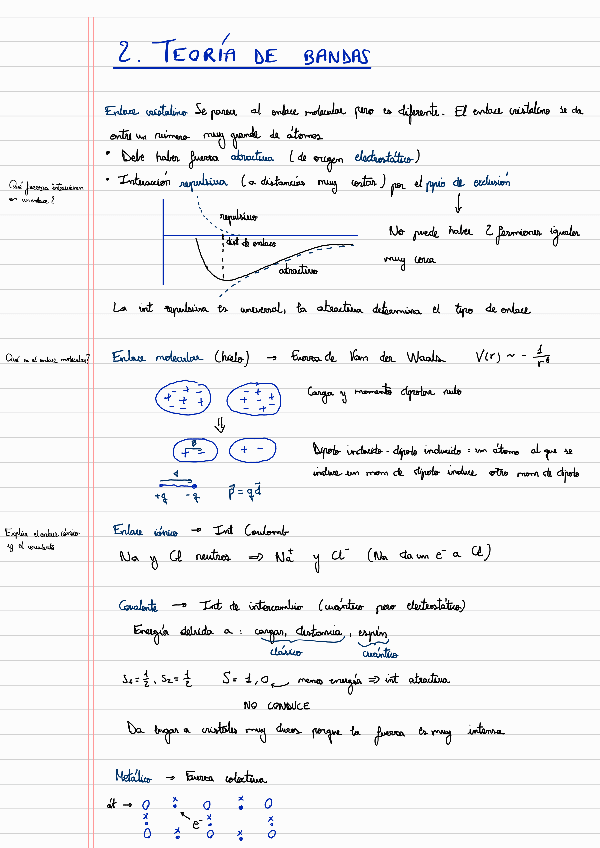 2. TEORÍA DE BANDAS
Enlace cristalino Se parece al enlace molecular pero es diferente. El enlace cristalino se da
entre un número muy grande de átomos
• Debe haber fuerza atractiva (de origen electrostático)
• Interacción repulsiva (a distancias muy cortas) por el ppio de exclusión
Qué fuerzas intervienen
en
repulsivo
dist de enlace
atractivo
No puede haber 2 fermiones iguales
muy cerca
La int repulsiva es universal, la atractiva determina el tipo de enlace
Qué es el enlace molecular?
Enlace molecular (hielo) → Fuerza de Van der Waals. V(r) ~ - 1/r⁶
Carga y momento dipolar nulo
- + - + - + + - -
- + - + + - + -
⇓
p
+ - + -
Dipolo inducido - dipolo inducido: un átomo al que se
induce un mom de dipolo induce otro mom de dipolo
d
+q -q p⃗ = q d⃗
Explica el enlace iónico
y el covalente
Enlace iónico → Int Coulomb
Na y Cl neutros ⇒ Na⁺ y Cl⁻ (Na da un e⁻ a Cl)
Covalente → Int de intercambio (cuántico pero electrostático)
Energía debida a: cargas, distancia, espín
clásico cuántico
S₁ = 1/2, S₂ = 1/2 S = 1, 0 menos energía ⇒ int atractiva
NO CONDUCE
Da lugar a cristales muy duros porque la fuerza es muy intensa
Metálico → Fuerza colectiva
át → O x O x O
x e⁻ x x
O x O x O